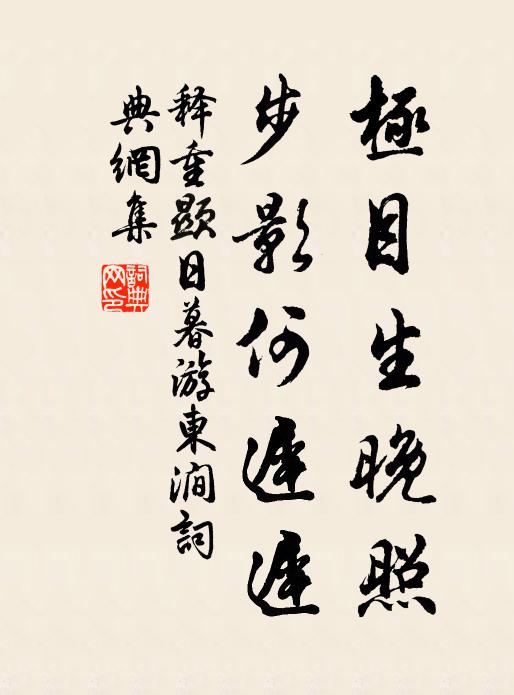 極目生晚照
步影何遲遲
释重顯日暮游東澗詞
典網集
詞典
网印